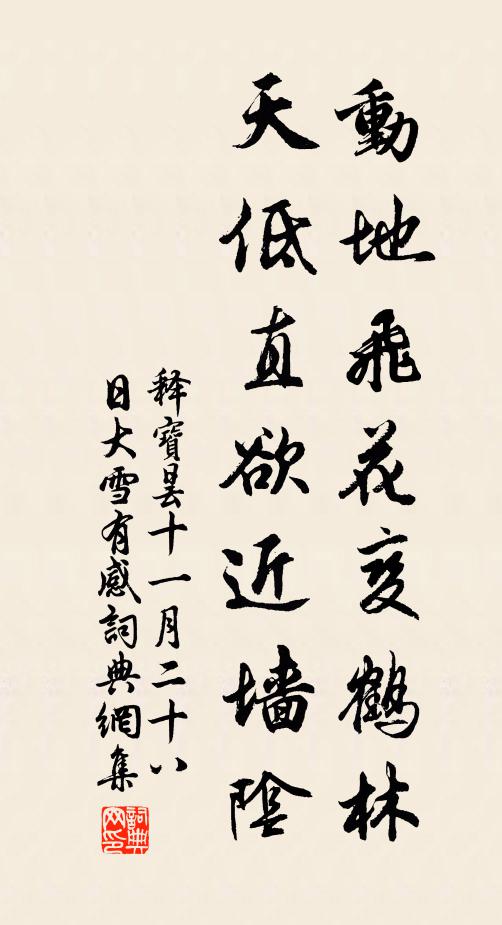 動地飛花变鹤林
天低直欲近墙陰
释寶曇十一月二十八
日大雪有感詞典網集
詞典网印